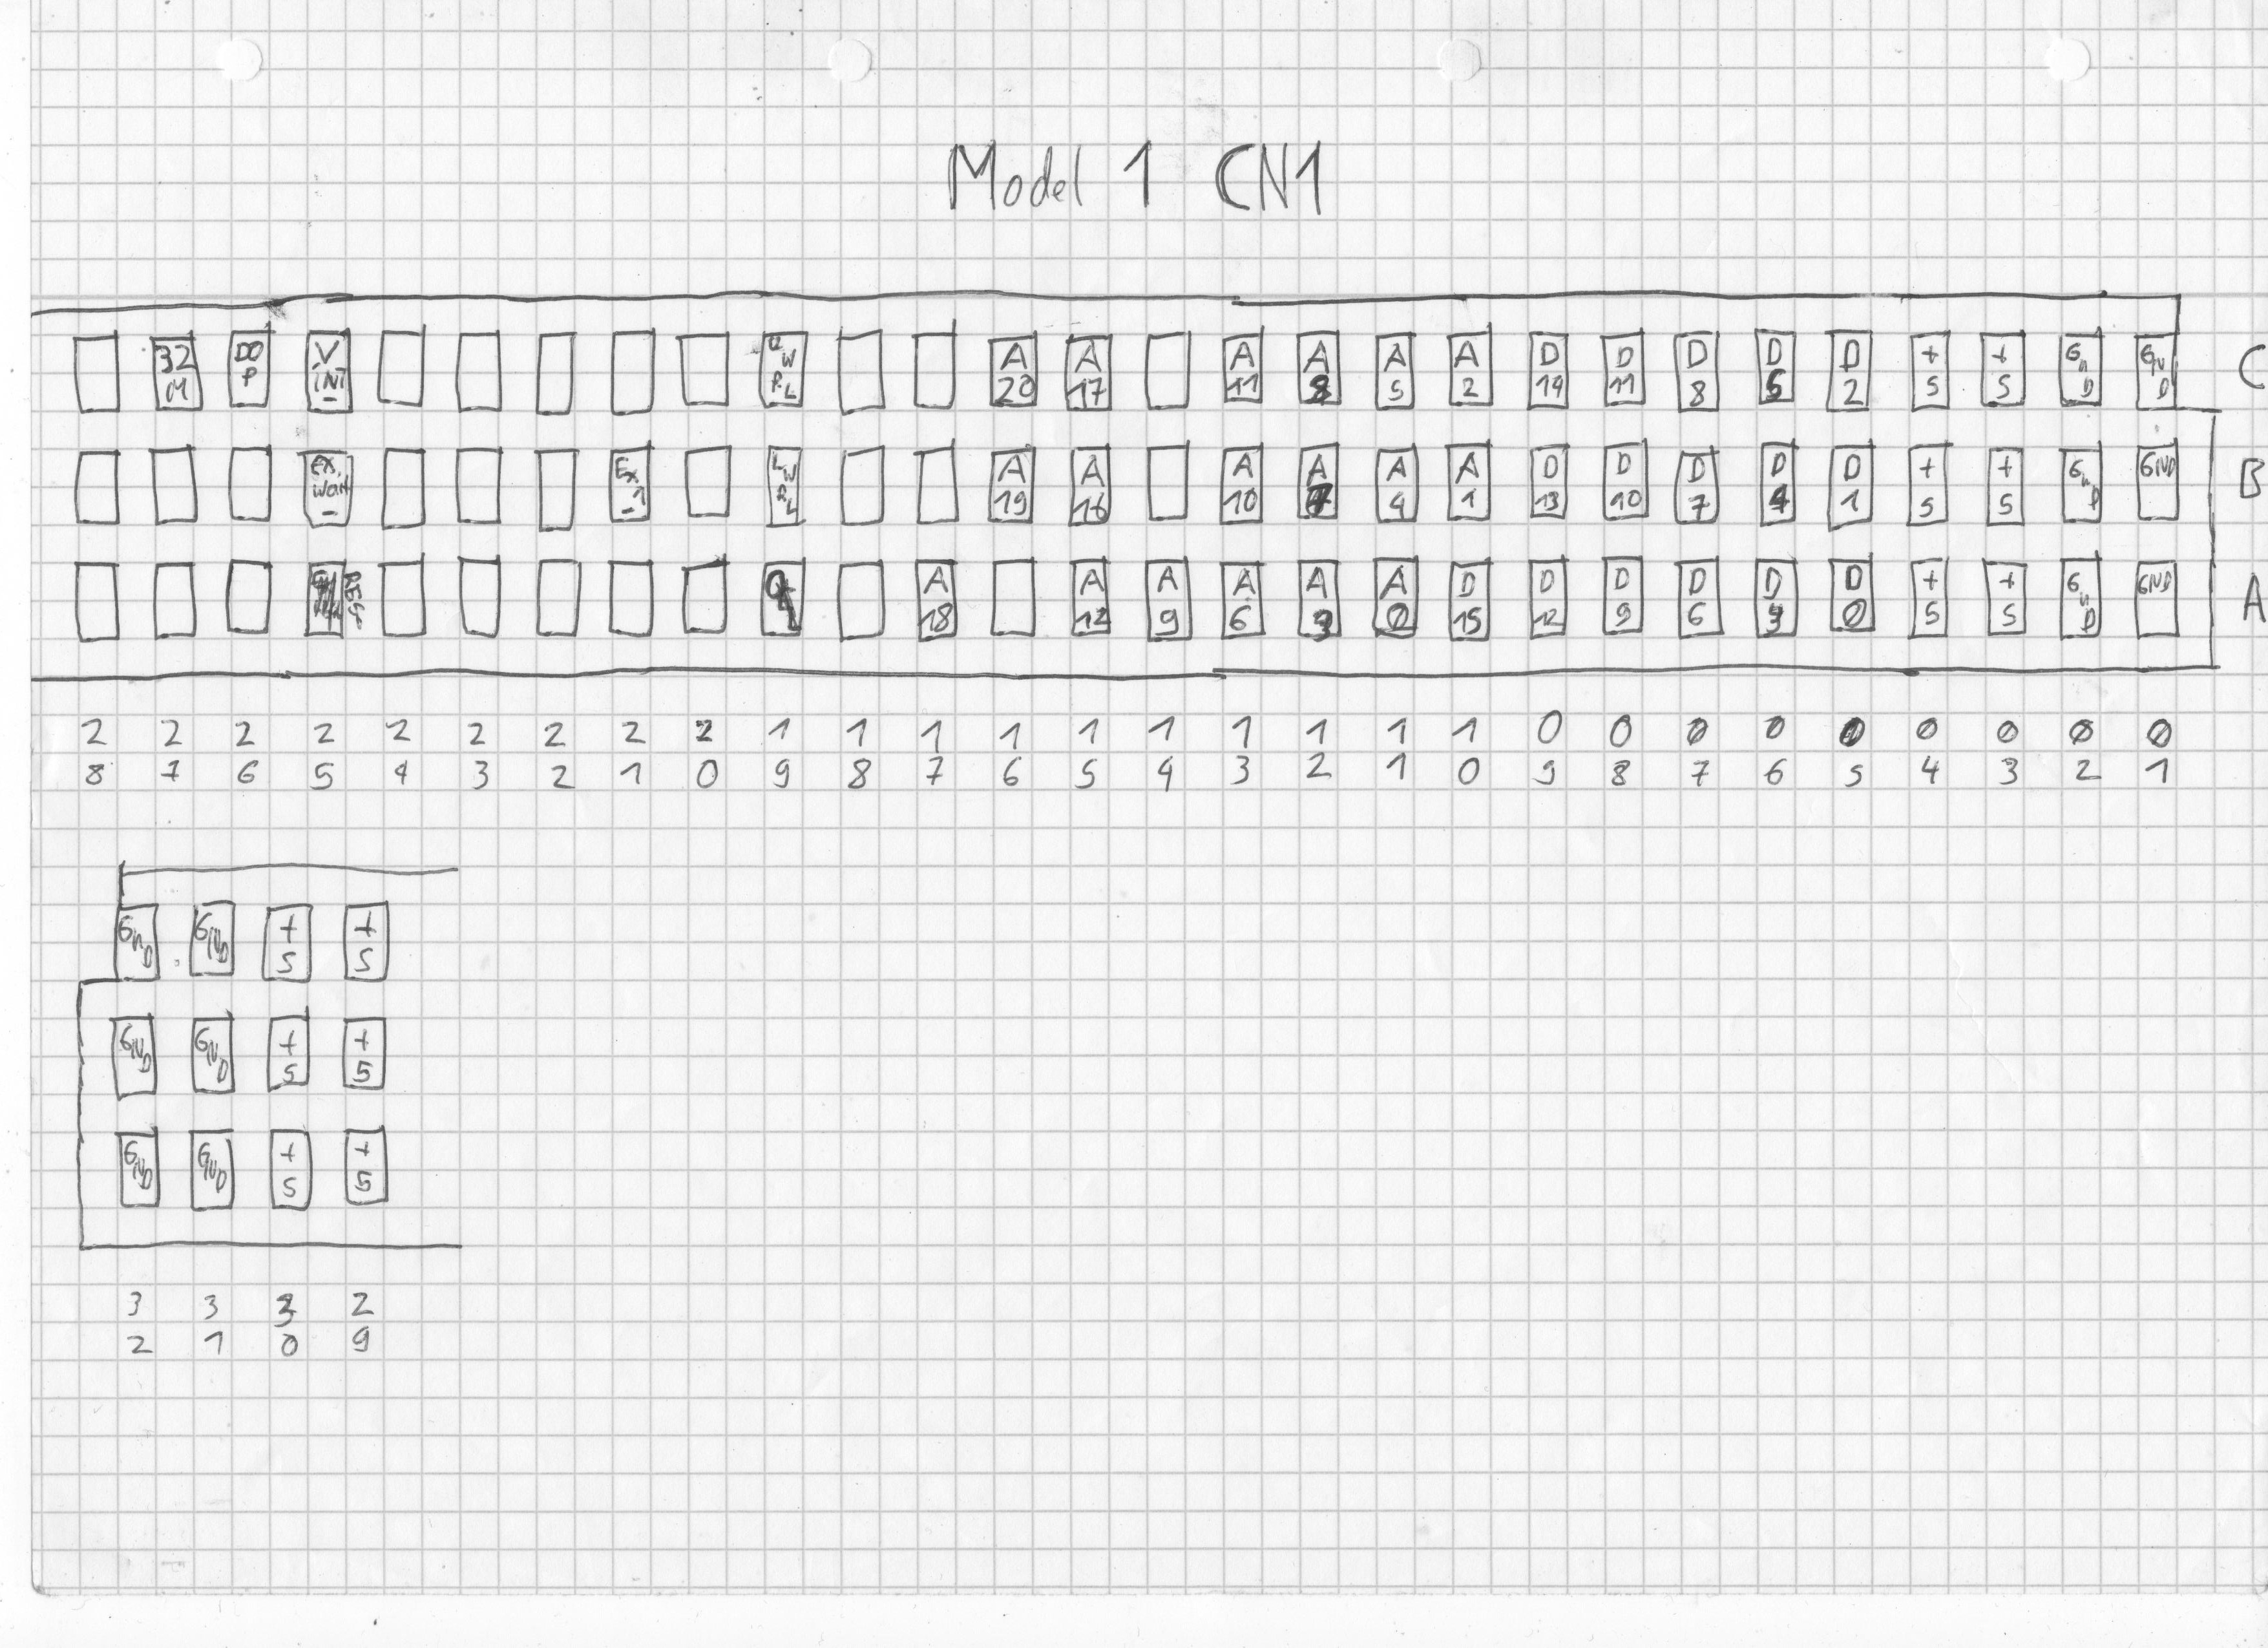 Model 1 CN1
32 M DO P V INT - U W R L A 20 A 17 A 11 A 8 A 5 A 2 D 14 D 11 D 8 D 5 D 2 + 5 + 5 GND GND C
EX. Wait - Ex - 1 L W R L A 19 A 16 A 10 A 7 A 4 A 1 D 13 D 10 D 7 D 4 D 1 + 5 + 5 GND GND B
A 18 A 12 A 9 A 6 A 3 A 0 D 15 D 12 D 9 D 6 D 3 D 0 + 5 + 5 GND GND A
28 27 26 25 24 23 22 21 20 19 18 17 16 15 14 13 12 11 10 09 08 07 06 05 04 03 02 01
GND GND + 5 + 5
GND GND + 5 + 5
GND GND + 5 + 5
32 31 30 29